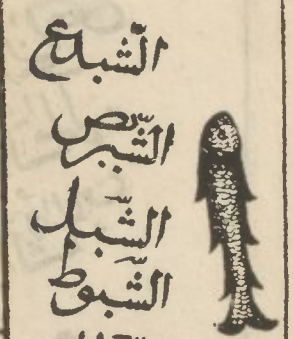 الشبدع
الشبربص
الشبل
الشبوط